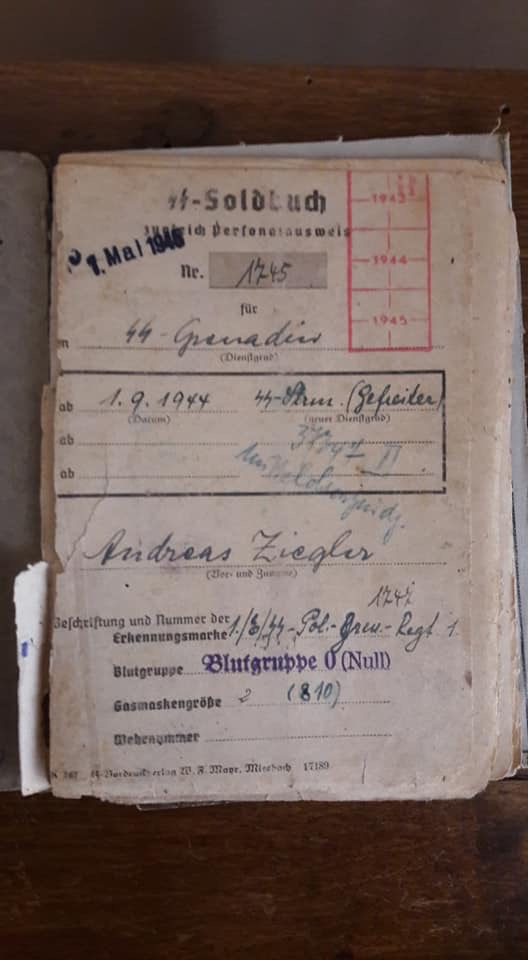 ᛋᛋ-Soldbuch
zugleich Personalausweis
1943
1. Mai 1946
Nr. 1745
1944
für
1945
ᛋᛋ-Grenadier
(Dienstgrad)
ab 1.9.1944 ᛋᛋ-Strm. (Gefreiter)
(Datum) (neuer Dienstgrad)
ab
ab
Andreas Ziegler
(Vor- und Zuname)
1747
Beschriftung und Nummer der
Erkennungsmarke 1./E/ᛋᛋ-Pol.-Gren.-Regt 1.
Blutgruppe Blutgruppe 0 (Null)
Gasmaskengröße 2 (810)
Wehrnummer
ᛋᛋ-Vordruckverlag W. F. Mayr, Miesbach 17189